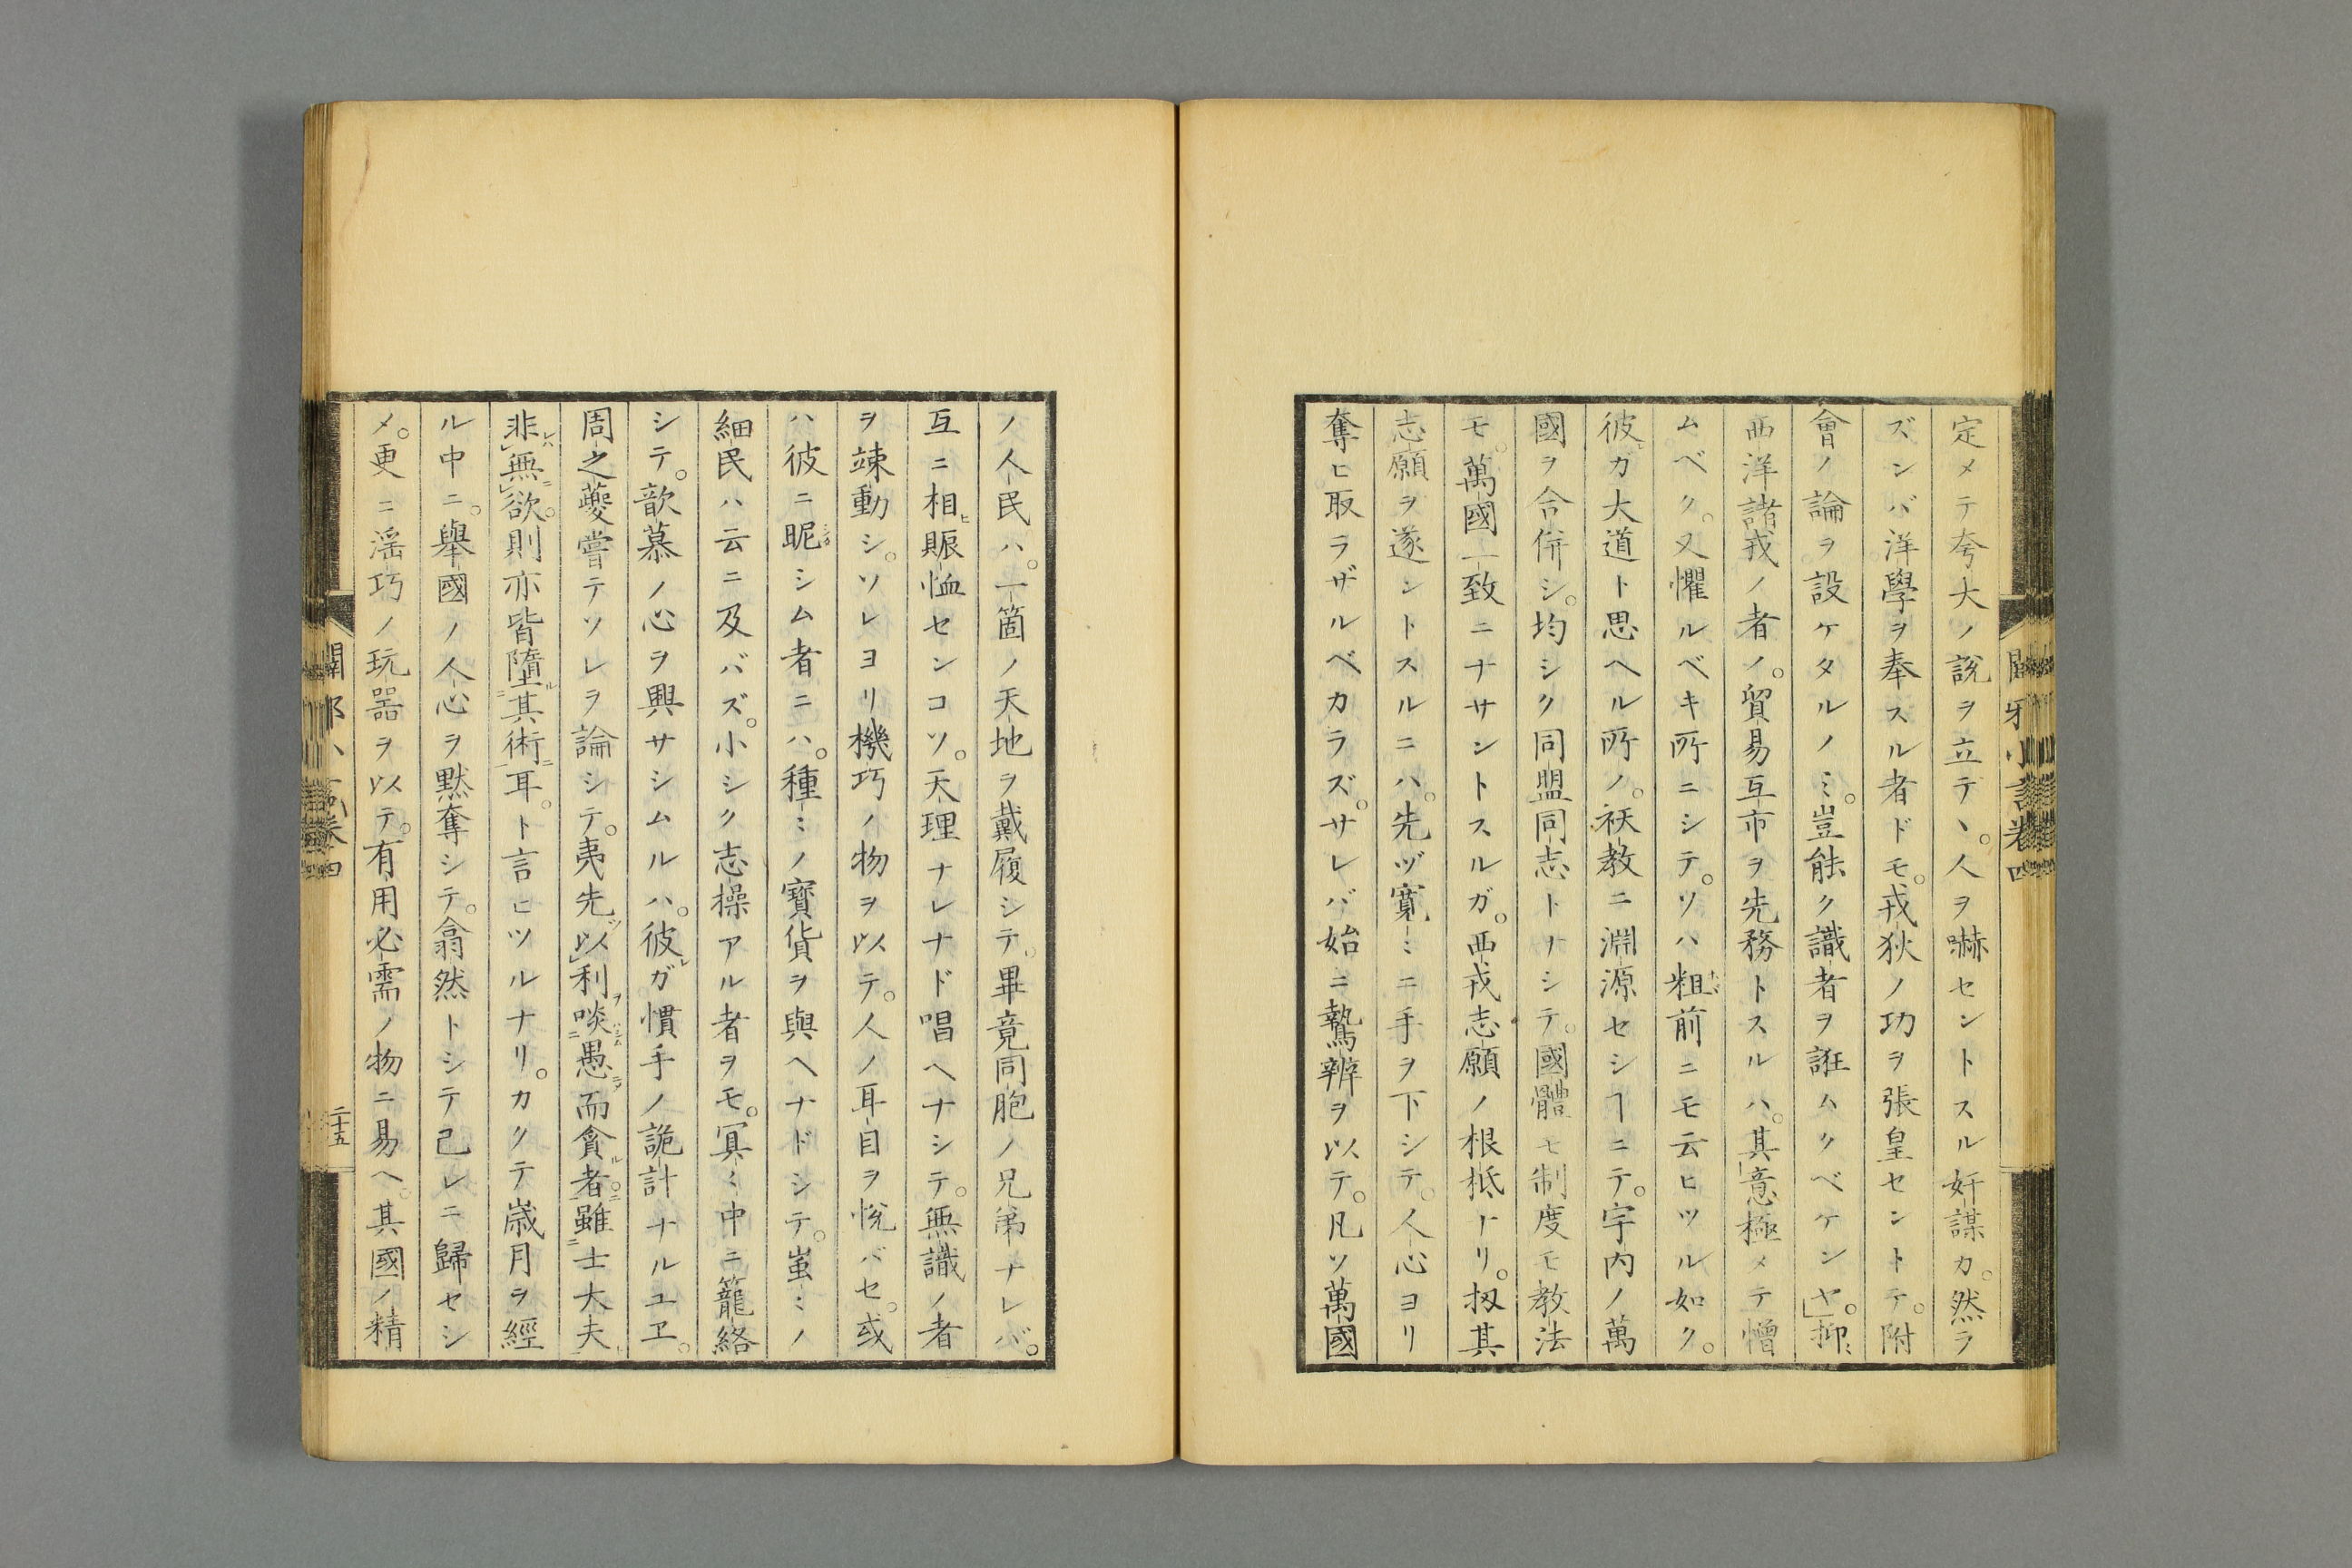 定メテ夸大ノ說ヲ立テヽ。人ヲ嚇セントスル奸謀カ。然ラ
ズンバ洋學ヲ奉スル者ドモ。戎狄ノ功ヲ張皇セントテ。附
會ノ論ヲ設ケタルノミ。豈能ク識者ヲ誑ムクベケンヤ。」抑ミ
西洋諸戎ノ者ノ。貿易互市ヲ先務トスルハ。其意極メテ憎
ムベク。又懼ルベキ所ニシテ。ソハ粗前ニモ云ヒツル如ク。
彼カ大道ト思ヘル所ノ。祅教ニ淵源セシヿニテ。宇内ノ萬
國ヲ合併シ。均シク同盟同志トナシテ。國體モ制度モ教法
モ。萬國一致ニナサントスルガ。西戎志願ノ根柢ナリ。扨其
志願ヲ遂ントスルニハ。先ヅ寬ミニ手ヲ下シテ。人心ヨリ
奪ヒ取ラザルベカラズ。サレバ始ニ鷙辨ヲ以テ。凡ソ萬國
ノ人民ハ。一箇ノ天地ヲ戴履シテ。畢竟同胞ノ兄弟ナレバ。
互ニ相ヒ賑恤センコソ。天理ナレナド唱ヘナシテ。無識ノ者
ヲ竦動シ。ソレヨリ機巧ノ物ヲ以テ。人ノ耳目ヲ悅バセ。或
ハ彼ニ昵シム者ニハ。種ミノ寶貨ヲ與ヘナドシテ。蚩ミノ
細民ハ云ニ及バズ。小シク志操アル者ヲモ。冥ミ中ニ籠絡
シテ。歆慕ノ心ヲ興サシムルハ。彼レガ慣手ノ詭計ナルユヱ。
周之夔嘗テソレヲ論シテ。夷先ヅ以利啖愚而貪者。雖士大夫
非無欲。則亦皆墮其術耳。ト言ヒツルナリ。カクテ歳月ヲ經
ル中ニ。舉國ノ人心ヲ黙奪シテ。翕然トシテ己レニ歸セシ
メ。更ニ淫巧ノ玩器ヲ以テ。有用必需ノ物ニ易ヘ。其國ノ精
闢邪小言卷四
二十五